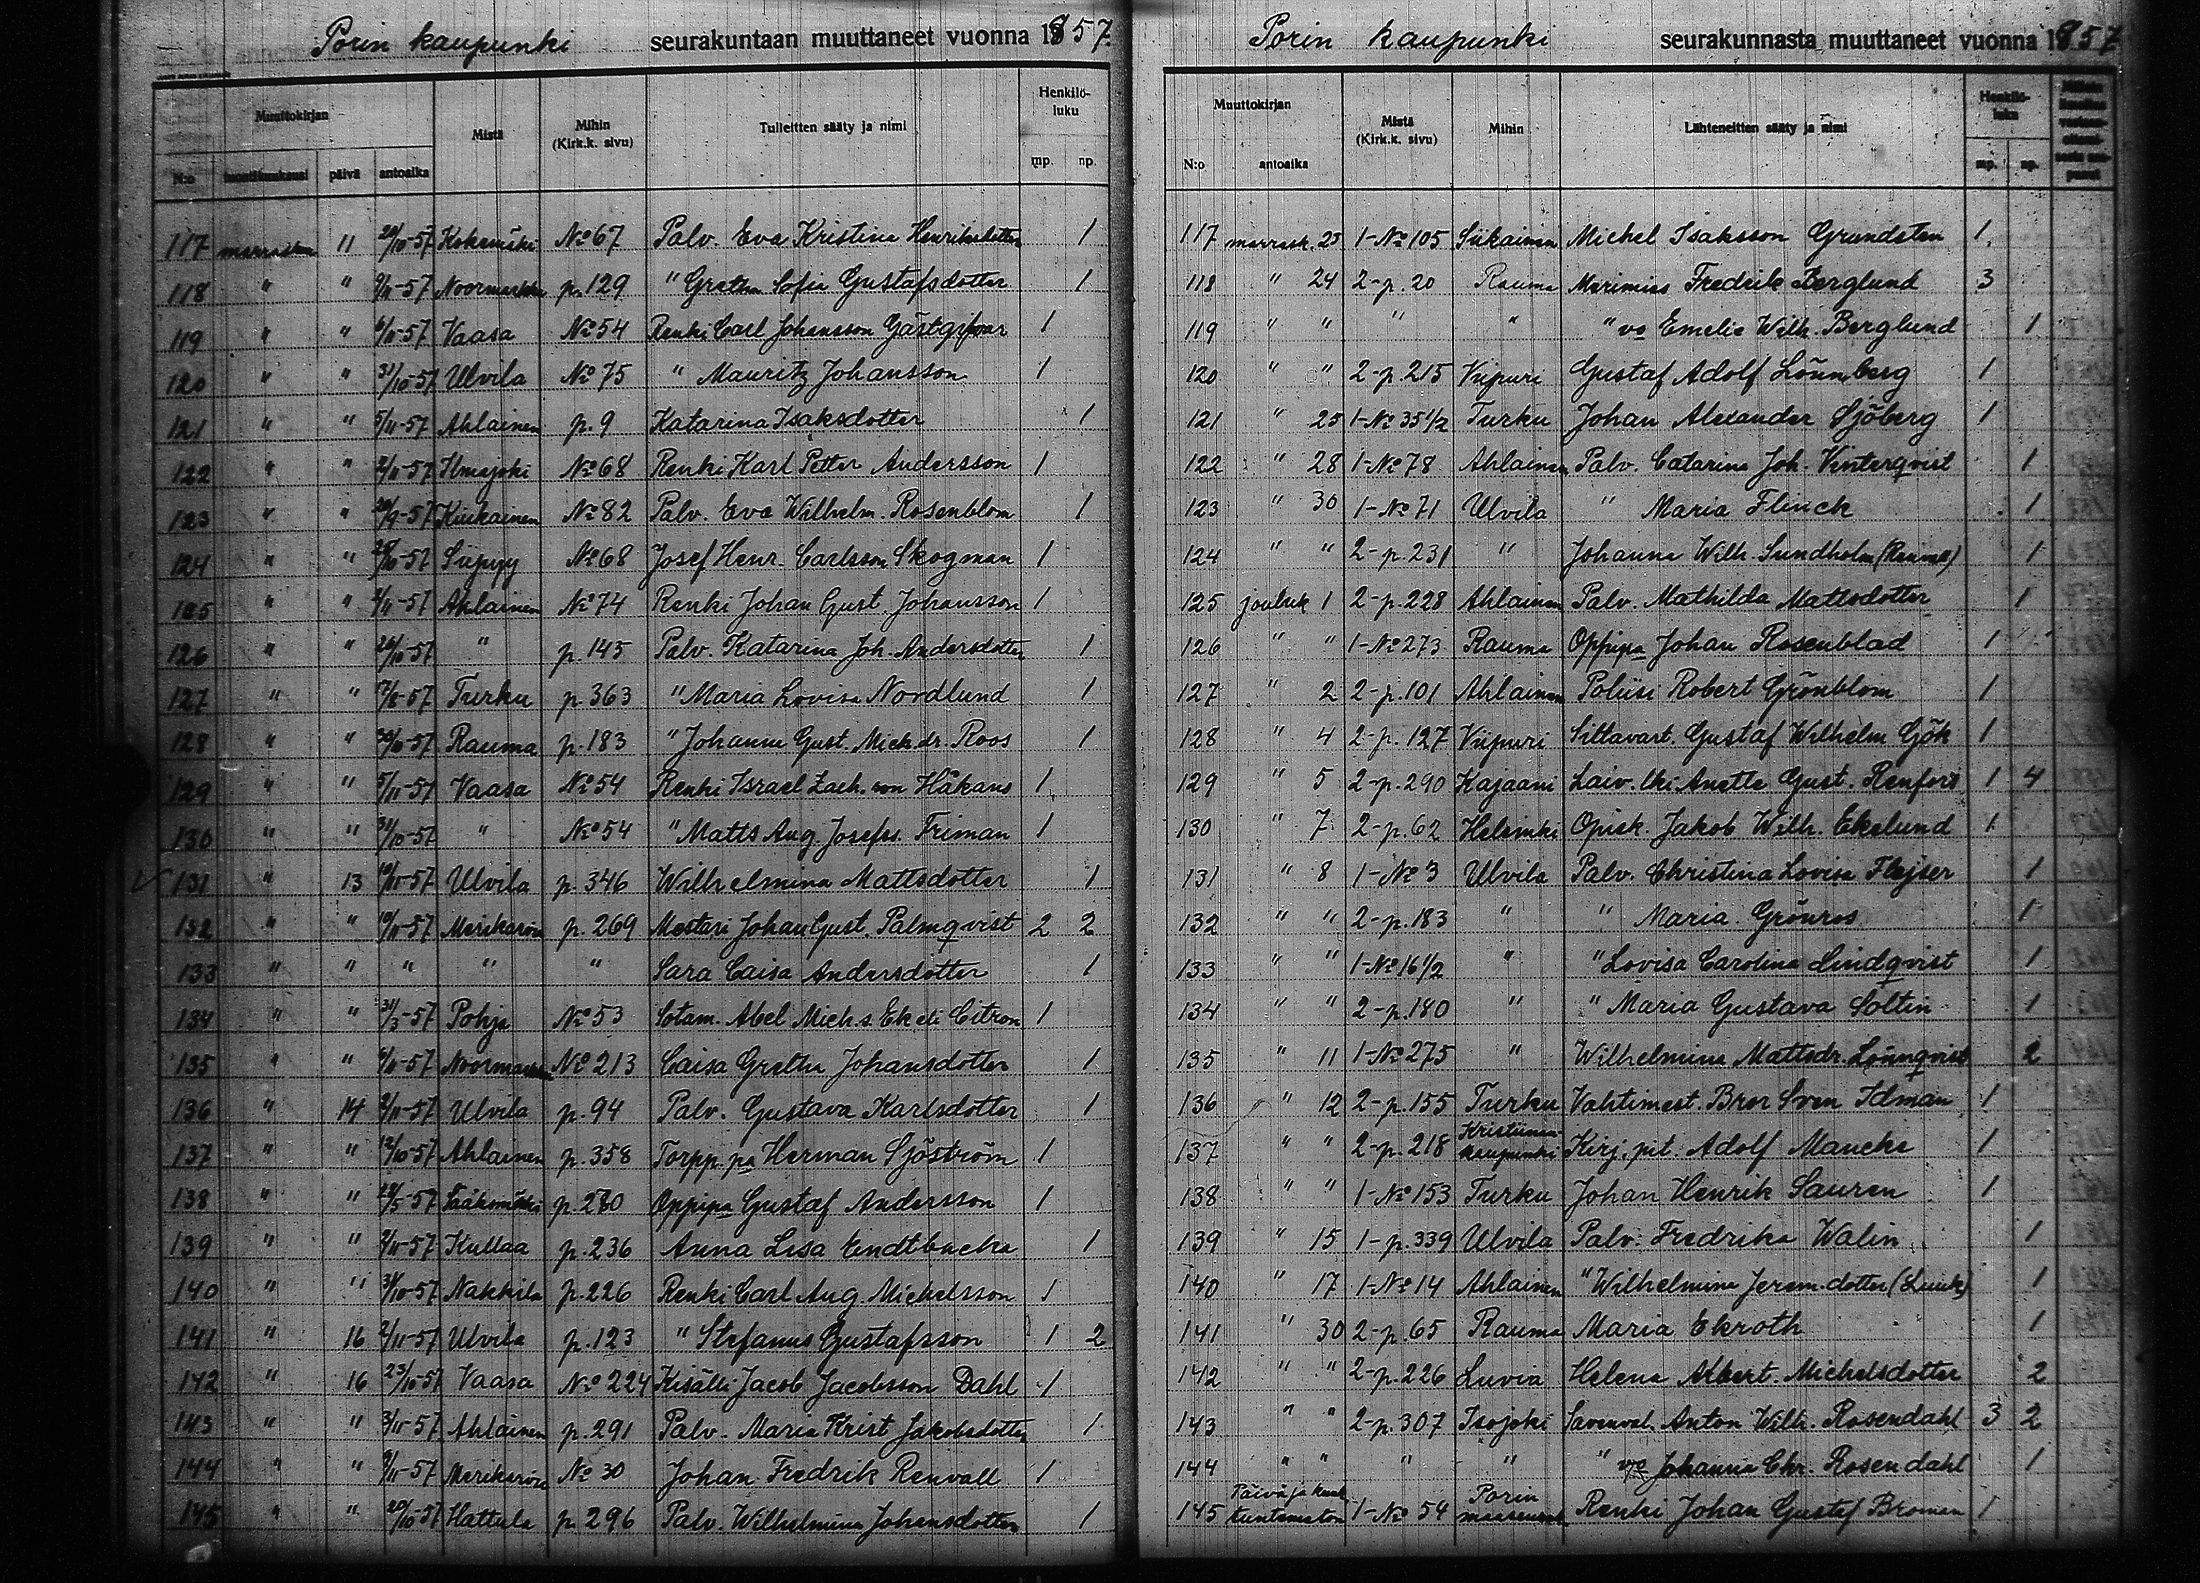 Porin kaupunki seurakuntaan muuttaneet vuonna 1857.
Muuttokirjan Mistä Mihin (Kirk.k. sivu) Tulleitten sääty ja nimi Henkilö-luku
N:o tuontikuukausi päivä antoaika mp. np.
117 marraskuu 11 20/10-57 Kokemäki No 67 Palv. Eva Kristina Henriksdotter 1
118 " " 9/11-57 Noormarkku p. 129 " Gretha Sofia Gustafsdotter 1
119 " " 6/11-57 Vaasa No 54 Renki Carl Johansson Gästgifvar 1
120 " " 31/10-57 Ulvila No 75 " Mauritz Johansson 1
121 " " 5/11-57 Ahlainen p. 9 Katarina Isaksdotter 1
122 " " 2/11-57 Ilmajoki No 68 Renki Karl Petter Andersson 1
123 " " 20/9-57 Kiukainen No 82 Palv. Eva Wilhelm. Rosenblom 1
124 " " 28/10-57 Siipyy No 68 Josef Henr. Carlsson Skogman 1
125 " " 2/11-57 Ahlainen No 74 Renki Johan Gust. Johansson 1
126 " " 26/10-57 " p. 145 Palv. Katarina Joh. Andersdotter 1
127 " " 17/8-57 Turku p. 363 " Maria Lovisa Nordlund 1
128 " " 30/10-57 Rauma p. 183 " Johanna Gust. Mich.dr. Roos 1
129 " " 5/11-57 Vaasa No 54 Renki Israel Zach. son Håkans 1
130 " " 30/10-57 " No 54 " Matts Aug. Josefss. Friman 1
131 " 13 10/11-57 Ulvila p. 346 Wilhelmina Mattsdotter 1
132 " " 10/11-57 Merikarvia p. 269 Mestari Johan Gust. Palmqvist 2 2
133 " " " " " Sara Caisa Andersdotter 1
134 " " 31/3-57 Pohja No 53 Sotam. Abel Mich.s. Ek eli Citron 1
135 " " 6/11-57 Noormarkku No 213 Caisa Gretha Johansdotter 1
136 " 14 2/11-57 Ulvila p. 94 Palv. Gustava Karlsdotter 1
137 " " 12/10-57 Ahlainen p. 358 Torpp.pa Herman Sjöström 1
138 " " 28/5-57 Sääksmäki p. 280 Oppipa Gustaf Andersson 1
139 " " 2/11-57 Kullaa p. 236 Anna Lisa Endtbacka 1
140 " " 31/10-57 Nakkila p. 226 Renki Carl Aug. Michelsson 1
141 " 16 2/11-57 Ulvila p. 123 " Stefanus Gustafsson 1 2
142 " 16 23/10-57 Vaasa No 224 Kisälli Jacob Jacobsson Dahl 1
143 " " 3/11-57 Ahlainen p. 291 Palv. Maria Krist Jakobsdotter 1
144 " " 9/11-57 Merikarvia No 30 Johan Fredrik Renvall 1
145 " " 20/10-57 Hattula p. 296 Palv. Wilhelmina Johansdotter 1
Porin kaupunki seurakunnasta muuttaneet vuonna 1857
Muuttokirjan Mistä (Kirk.k. sivu) Mihin Lähteneitten sääty ja nimi Henkilö-luku
N:o antoaika mp. np.
117 marrask. 23 1-No 105 Siikainen Michel Isaksson Grundsten 1
118 " 24 2-p. 20 Rauma Merimies Fredrik Berglund 3
119 " " " " " vo Emelie Wilh. Berglund 1
120 " " 2-p. 215 Viipuri Gustaf Adolf Lönnberg 1
121 " 25 1-No 35 1/2 Turku Johan Alexander Sjöberg 1
122 " 28 1-No 78 Ahlainen Palv. Catarina Joh. Vinterqvist 1
123 " 30 1-No 71 Ulvila " Maria Flinck 1
124 " " 2-p. 231 " Johanna Wilh. Sundholm (Renvall) 1
125 jouluk 1 2-p. 228 Ahlainen Palv. Mathilda Mattsdotter 1
126 " " 1-No 273 Rauma Oppipa Johan Rosenblad 1
127 " 2 2-p. 101 Ahlainen Poliisi Robert Grönblom 1
128 " 4 2-p. 127 Viipuri Siltavart. Gustaf Wilhelm Gök 1
129 " 5 2-p. 290 Kajaani Laiv. lki Anette Gust. Renfors 1 4
130 " 7 2-p. 62 Helsinki Opisk. Jakob Wilh. Ekelund 1
131 " 8 1-No 3 Ulvila Palv. Christina Lovisa Flejser 1
132 " " 2-p. 183 " " Maria Grönros 1
133 " " 1-No 16 1/2 " " Lovisa Carolina Lindqvist 1
134 " " 2-p. 180 " " Maria Gustava Soltin 1
135 " 11 1-No 275 " Wilhelmina Mattsdr. Lönnqvist 2
136 " 12 2-p. 155 Turku Vahtimest. Bror Sven Idman 1
137 " " 2-p. 218 Kristiinankaupunki Kirj.pit. Adolf Mancke 1
138 " " 1-No 153 Turku Johan Henrik Sauren 1
139 " 15 1-p. 339 Ulvila Palv. Fredrika Walin 1
140 " 17 1-No 14 Ahlainen " Wilhelmina Jerem.dotter (Luuk) 1
141 " 30 2-p. 65 Rauma Maria Ekroth 1
142 " " 2-p. 226 Luvia Helena Albert. Michelsdotter 2
143 " " 2-p. 307 Isojoki Savenval. Anton Wilh. Rosendahl 3 2
144 " " " " " vo Johanna Chr. Rosendahl 1
145 Päivä ja kuuk. tuntematon 1-No 54 Porin maaseurak. Renki Johan Gustaf Broman 1